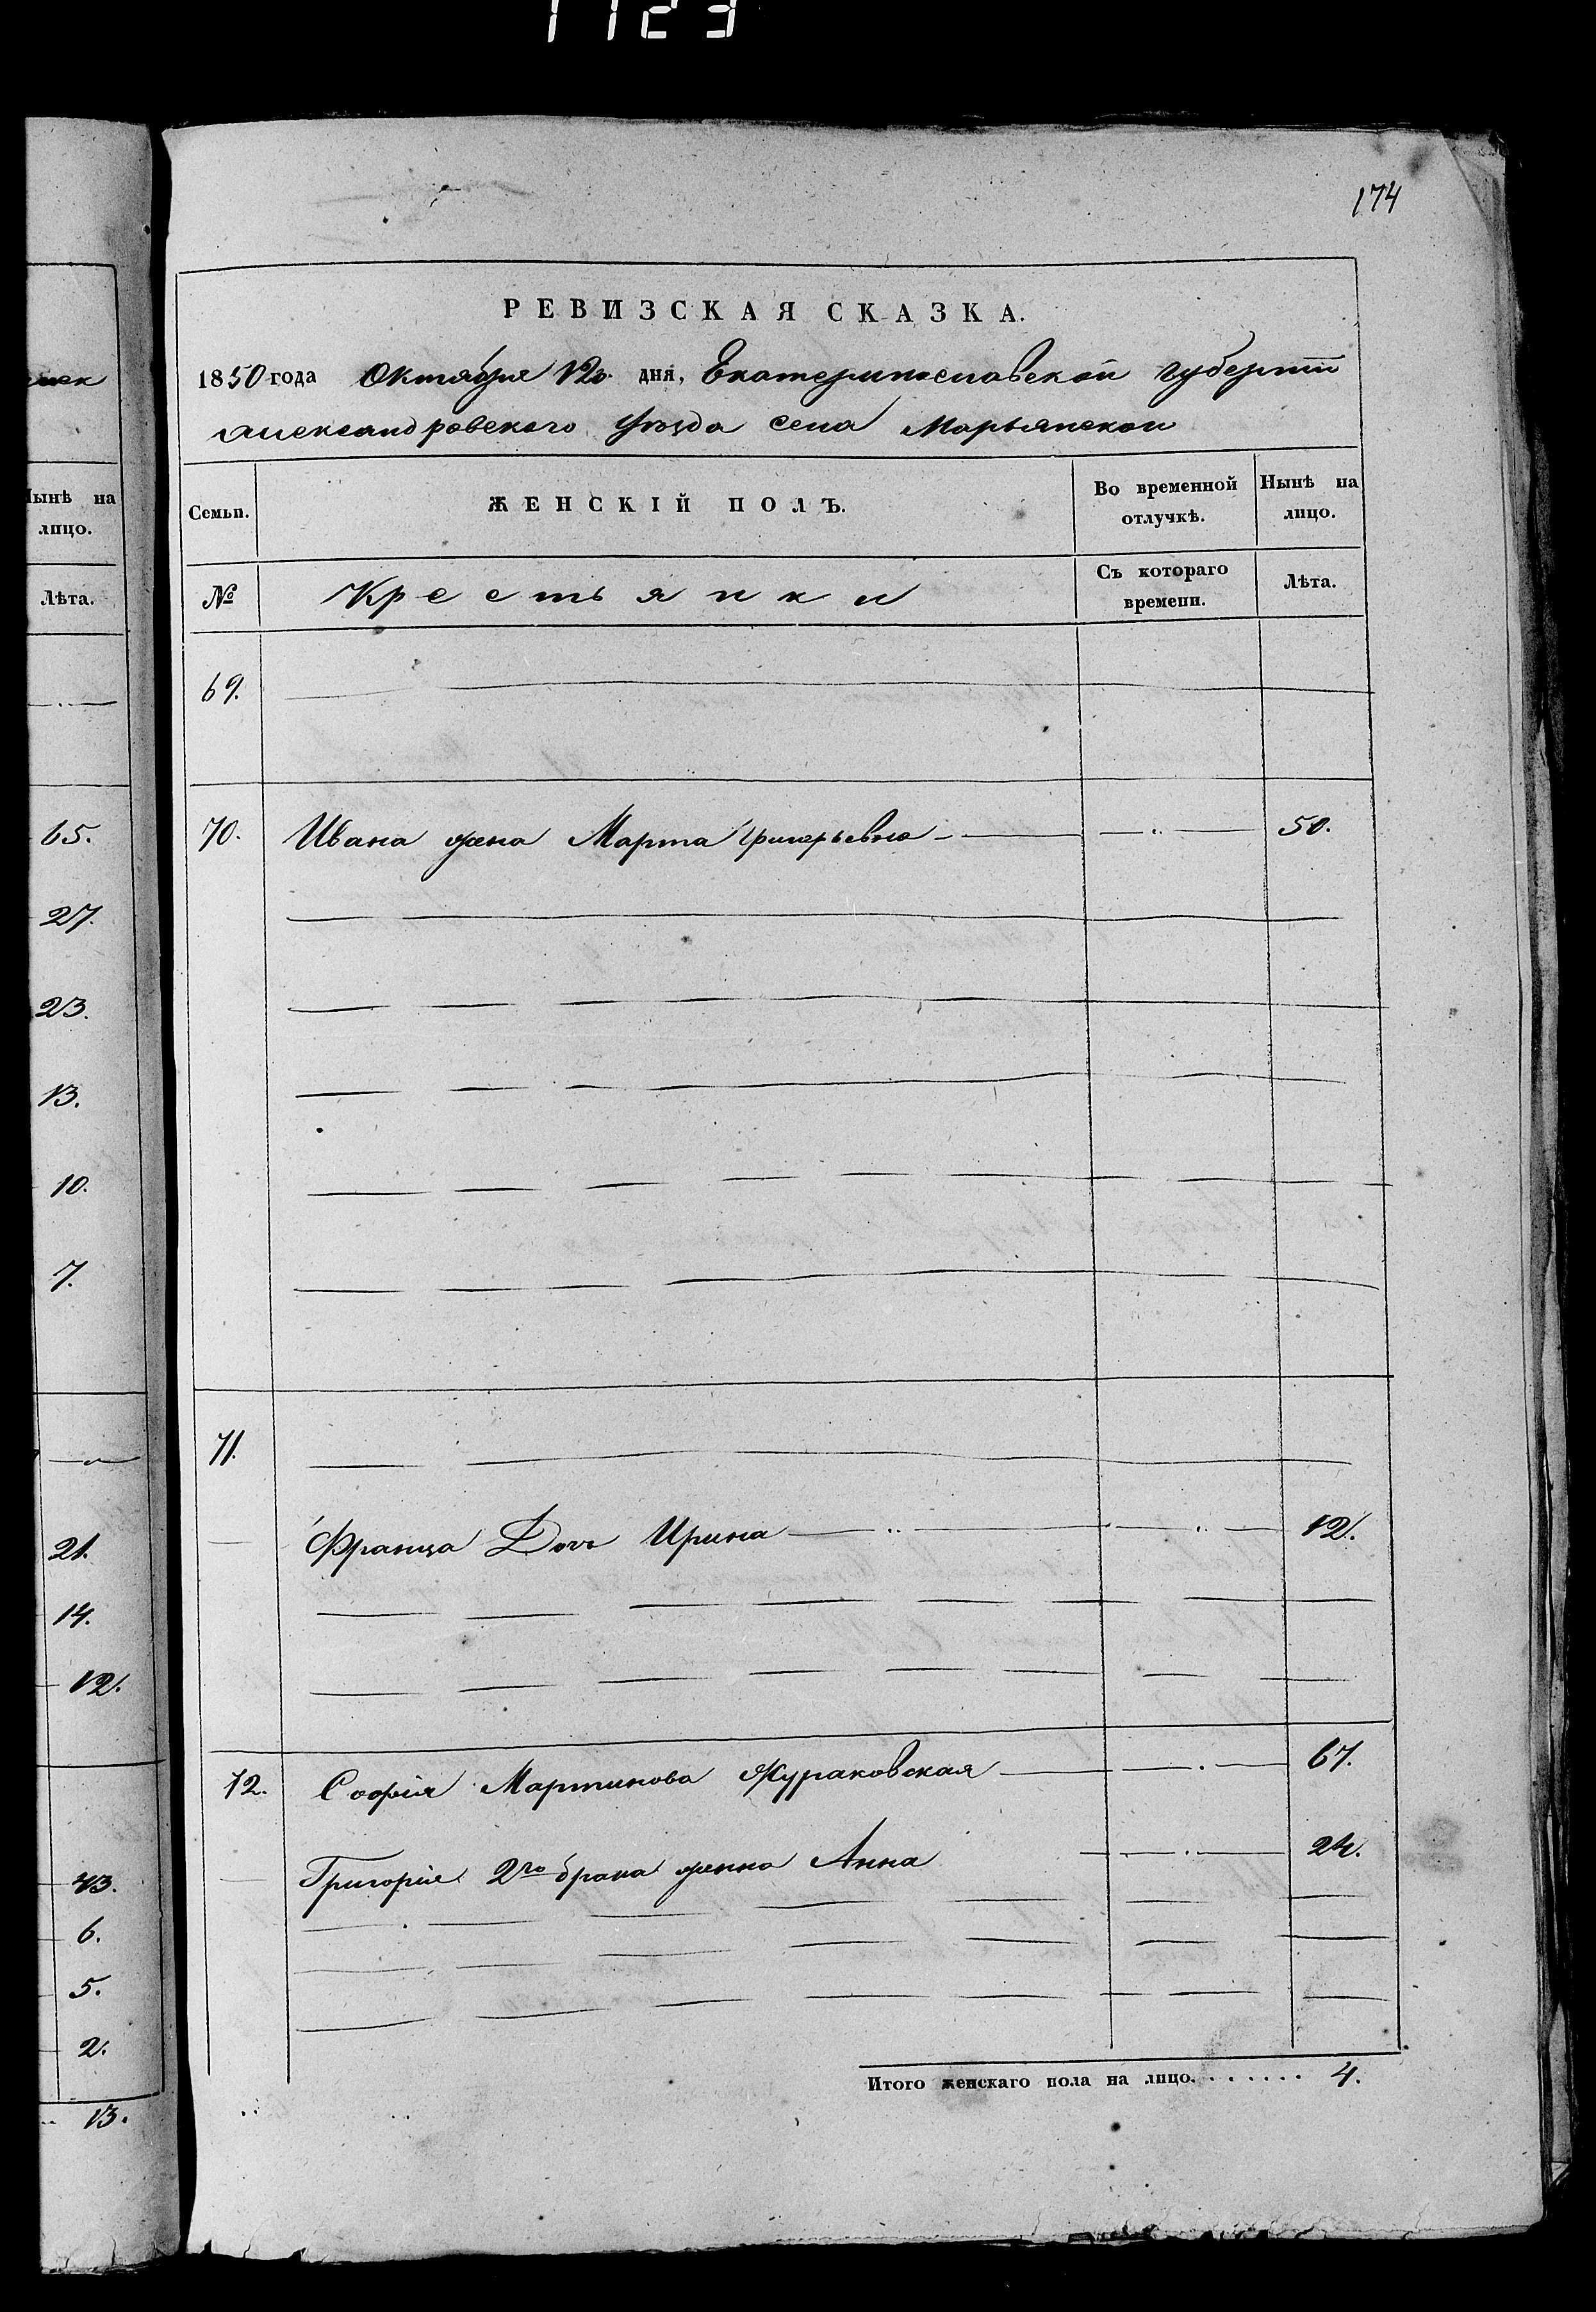 1123
174
РЕВИЗСКАЯ СКАЗКА.
1850 года Октября 12го дня, Екатеринославской губернии
Александровского уѣзда села Марьянской
Семьи. ЖЕНСКІЙ ПОЛЪ. Во временной отлучкѣ. Нынѣ на лицо.
№ Крестьянки Съ котораго времени. Лѣта.
69.
70. Ивана жена Марта Григорьевна 50.
71.
Франца Дочь Ирина 12.
72. Софія Мартинова Жураковская 67.
Григорія 2го брака женна Анна 24.
Итого женскаго пола на лицо. . . . . . . 4.
Нынѣ на
лицо.
Лѣта.
65.
27.
23.
13.
10.
7.
21.
14.
12.
43.
6.
5.
2.
13.